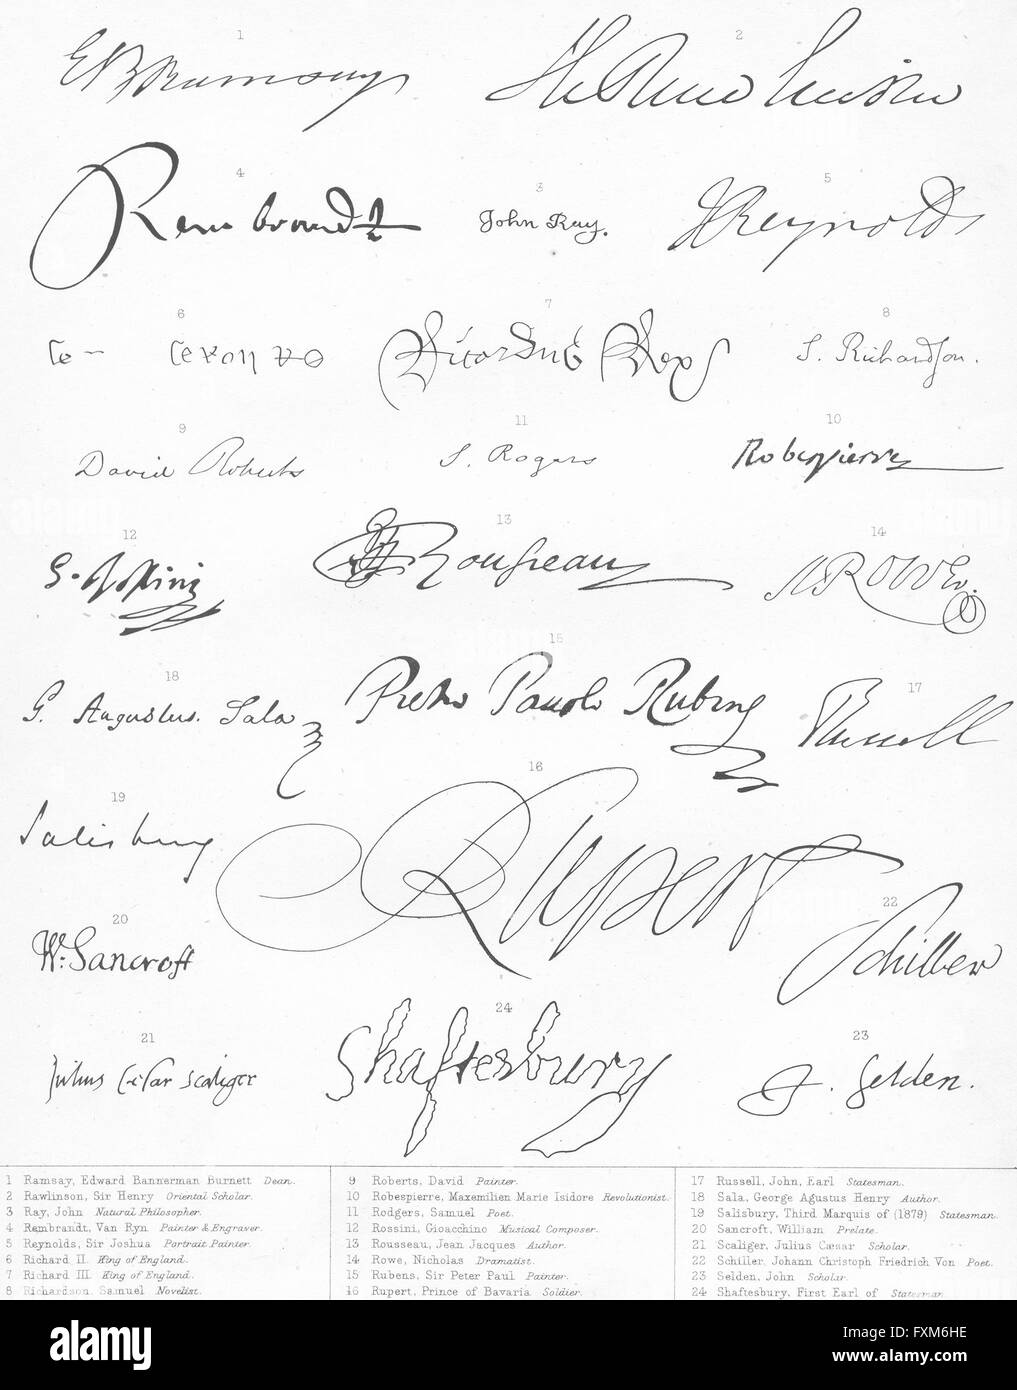 1 2
E B Ramsay
4 3 5
Rembrandt John Ray. J Reynolds
6 7 8
Ricardus Rex S. Richardson.
9 11 10
David Roberts S. Rogers Robespierre
12 13 14
G. Rossini JJ Rousseau N ROWE.
18 15 17
G. Augustus. Sala Pietro Pauolo Rubens Russell
19 16
Salisbury Rupert
20 22
W. Sancroft Schiller
21 24 23
Julius Cesar Scaliger Shaftesbury J. Selden.
1 Ramsay, Edward Bannerman Burnett Dean.
2 Rawlinson, Sir Henry Oriental Scholar.
3 Ray, John Natural Philosopher.
4 Rembrandt, Van Ryn Painter & Engraver.
5 Reynolds, Sir Joshua Portrait Painter.
6 Richard II. King of England.
7 Richard III. King of England.
8 Richardson, Samuel Novelist.
9 Roberts, David Painter.
10 Robespierre, Maxemilien Marie Isidore Revolutionist.
11 Rodgers, Samuel Poet.
12 Rossini, Gioacchino Musical Composer.
13 Rousseau, Jean Jacques Author.
14 Rowe, Nicholas Dramatist.
15 Rubens, Sir Peter Paul Painter.
16 Rupert, Prince of Bavaria Soldier.
17 Russell, John, Earl Statesman.
18 Sala, George Agustus Henry Author.
19 Salisbury, Third Marquis of (1879) Statesman.
20 Sancroft, William Prelate.
21 Scaliger, Julius Cæsar Scholar.
22 Schiller, Johann Christoph Friedrich Von Poet.
23 Selden, John Scholar.
24 Shaftesbury, First Earl of Statesman.
alamy
Image ID: FXM6HE
www.alamy.com